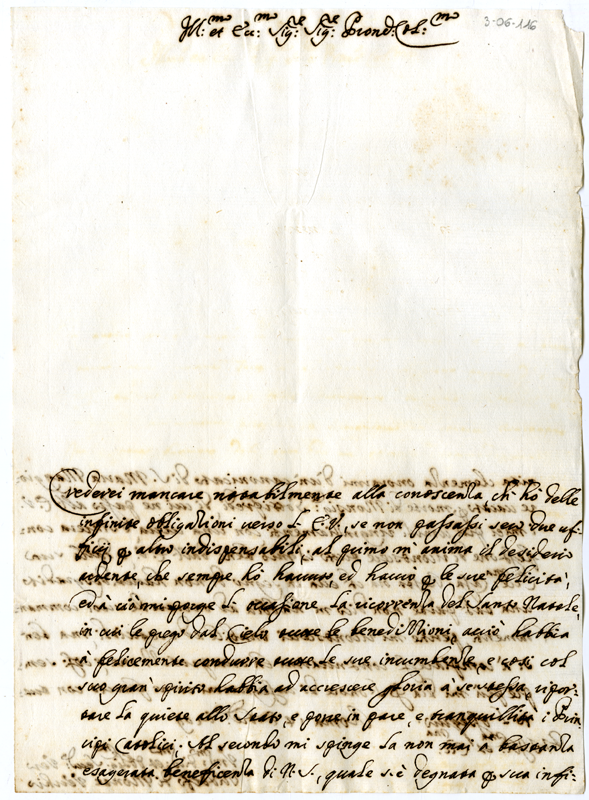 3-06-116
Ill:mo et Ecc:mo Sig:re Sig:re Pron: Col:mo
Crederei mancare notabilmente alla conoscenza, ch' hò delle
infinite obligationi verso l' E.V., se non passassi seco due uf-
ficij p altro indispensabili. al primo m' anima il desiderio
ardente, che sempre hò hauuto, ed haurò p le sue felicità,
ed à ciò mi porge l' occasione la ricorrenza del Santo Natale,
in cui le prego dal Cielo tutte le benedittioni, acciò habbia
à felicemente condurre tutte le sue incumbenze, e così col
suo gran' spirito habbia ad accrescere gloria à se stessa, ripor-
tare la quiete allo Stato, e porre in pace, e tranquillità i Prin-
cipi Cattolici. Al secondo mi spinge la non mai à bastanza
esagerata beneficenza di N.S., quale s' è degnata p sua infi-